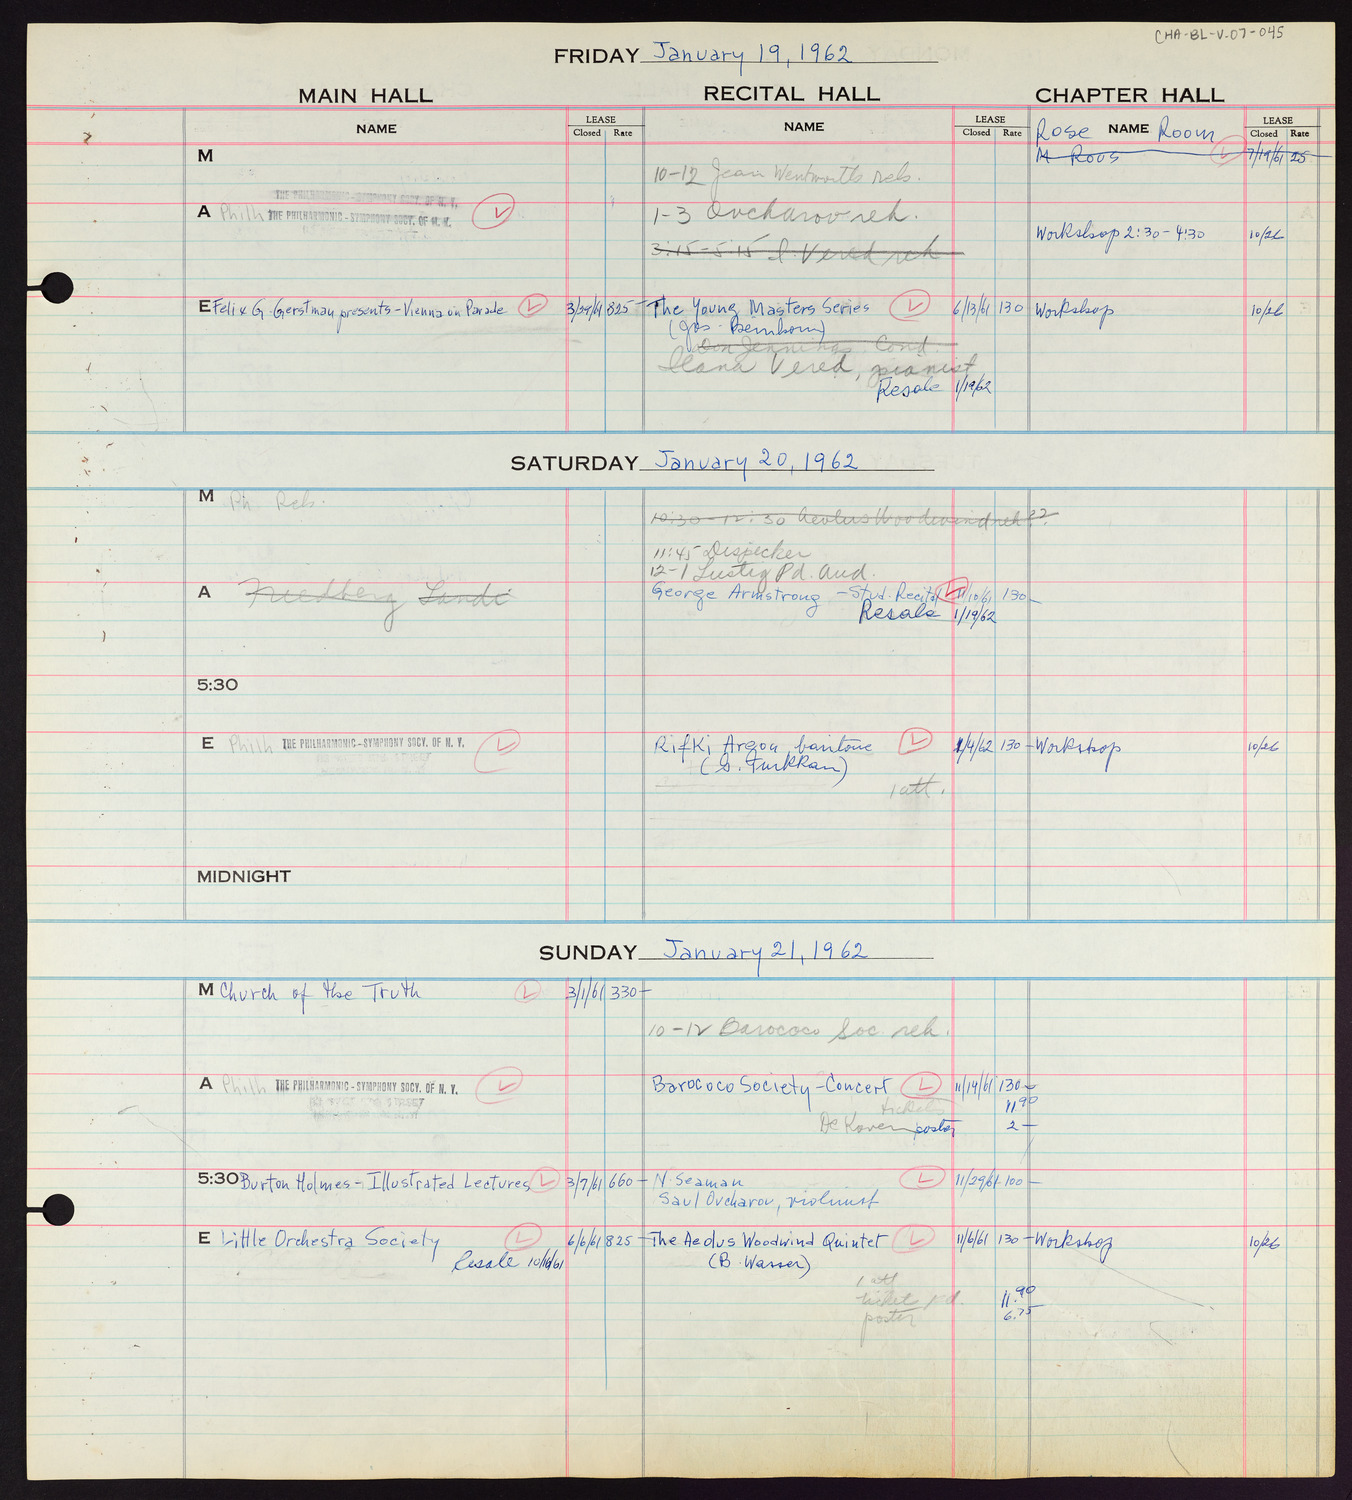 CHA-BL-V.07-045
FRIDAY January 19, 1962
MAIN HALL RECITAL HALL CHAPTER HALL
NAME LEASE Closed Rate NAME LEASE Closed Rate Rose NAME Room LEASE Closed Rate
M
M Roos 7/19/61 25
10-12 Jean Wentworth reh.
THE PHILHARMONIC-SYMPHONY SOCY. OF N. Y.
A Philh THE PHILHARMONIC-SYMPHONY SOCY. OF N. Y.
1-3 Ovcharov reh.
Workshop 2:30-4:30 10/26
3:15-5:15 I. Vered reh
E Felix G. Gerstman presents-Vienna on Parade 3/29/61 825- The Young Masters Series 6/13/61 130 Workshop 10/26
(Jos. Bernbom)
Don Jennings Cond.
Ilana Vered, pianist
Resale 1/19/62
SATURDAY January 20, 1962
M Ph. Reh.
10:30-12:30 Aeolus Woodwind reh??
11:45 Dispecker
12-1 Lustig Pd. Aud.
A Friedberg Landi
George Armstrong - Stud. Recital 11/10/61 130-
Resale 1/19/62
5:30
E Philh THE PHILHARMONIC-SYMPHONY SOCY. OF N. Y. Rifki Argon, baritone 1/4/62 130- Workshop 10/26
(G. Turkkan)
1 att.
MIDNIGHT
SUNDAY January 21, 1962
M Church of the Truth 3/1/61 330-
10-12 Barococo Soc. reh.
A Philh THE PHILHARMONIC-SYMPHONY SOCY. OF N. Y. Barococo Society-Concert 11/14/61 130-
tickets 11.90
De Koven poster 2-
5:30 Burton Holmes-Illustrated Lectures 3/7/61 660- N Seaman 11/29/61 100-
Saul Ovcharov, violinist
E Little Orchestra Society 6/6/61 825- The Aeolus Woodwind Quintet 11/6/61 130- Workshop 10/26
Resale 10/16/61 (B. Wasser)
1 att
tickets pd. 11.90
poster 6.75